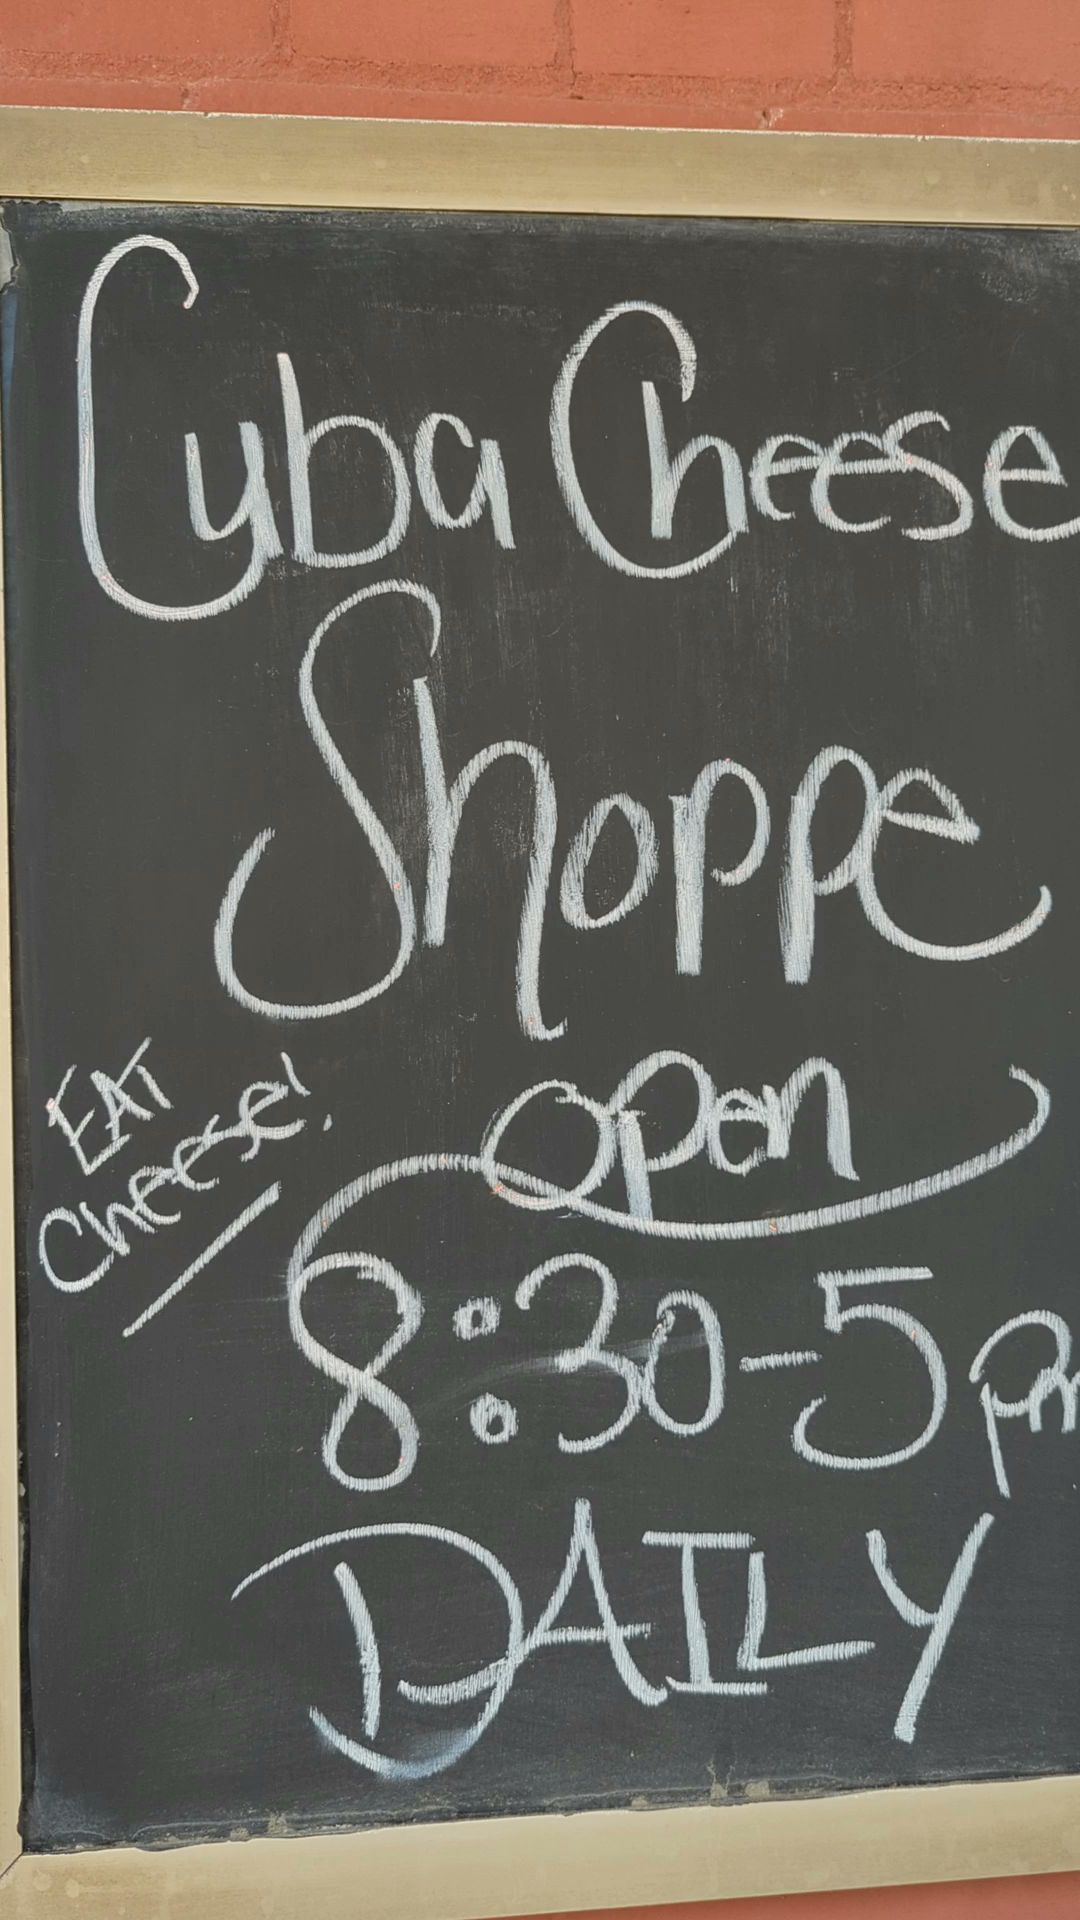 Cuba Cheese
Shoppe
EAT
Cheese!
open
8:30-5pm
DAILY